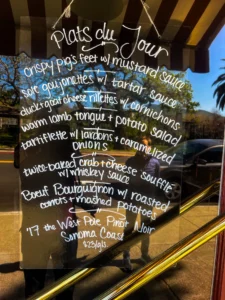 Plats du Jour
crispy pig's feet w/ mustard sauce
sole goujonettes w/ tartar sauce
duck + goat cheese rillettes w/ cornichons
warm lamb tongue + potato salad
tartiflette w/ lardons + caramelized
onions
twice-baked crab + cheese soufflé
w/ whiskey sauce
Boeuf Bourguignon w/ roasted
carrots + mashed potatoes
'77 the West Pole Pinot Noir
Sonoma Coast